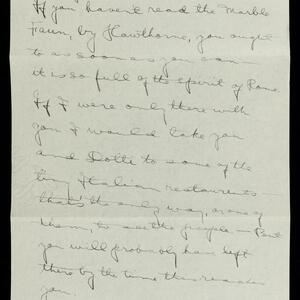 If you haven't read the Marble
Faun, by Hawthorne, you ought
to as soon as you can —
it is so full of the spirit of Rome.
If I were only there with
you I would take you
and Dotti to some of the
tiny Italian restaurants —
that's the only way, or one of
them, to see the people — But
you will probably have left
there by the time this reaches
you.